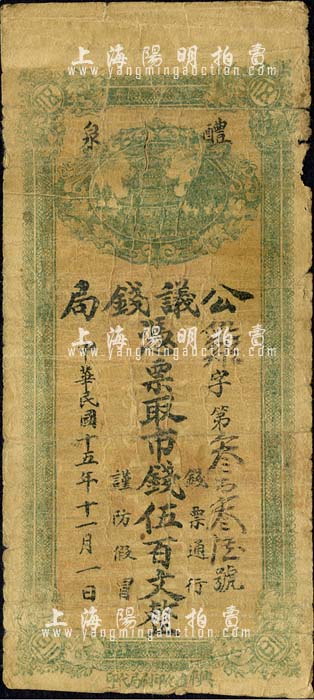 上海陽明拍賣
www.yangmingauction.com
醴泉
公議錢局
字第叁百叁拾號
憑票取市錢伍百文整
錢票通行
謹防假冒
中華民國十五年十一月一日
上海陽明拍賣
www.yangmingauction.com
上海陽明拍賣
www.yangmingauction.com